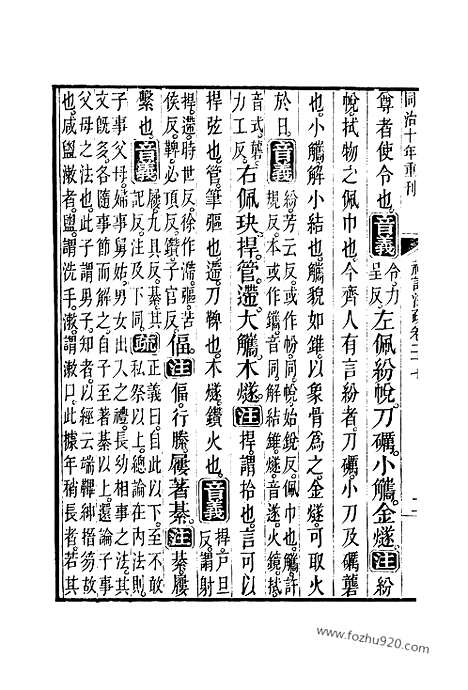 同治十年重刊
禮記注疏卷二十七
尊者使令也。音義令力呈反左佩紛帨刀礪小觿金燧注紛
帨拭物之佩巾也今齊人有言紛者刀礪小刀及礪礱
也小觿解小結也觿貌如錐以象骨爲之金燧可取火
於日。音義紛芳云反或作帉同帨始銳反佩巾也觿許
規反本或作鑴音同解結錐燧音遂火鏡拭
音式礱力工反右佩玦捍管遰大觿木燧注捍謂拾也言可以
捍弦也管筆彄也遰刀鞞也木燧鑽火也音義捍戸旦反謂射
捍遰時世反徐作滯彄苦侯反鞞必頂反鑽子官反偪。注偪行縢屨著綦。注綦屨
繫也。音義屨九具反綦其記反注及下同疏正義曰自此以下至不敢
私祭以上總論在内法則
子事父母婦事舅姑男女出入之禮長幼相事之法其
文旣多各隨事節而解之自子至著綦以上還論子事
父母之法也此子謂男子知者以經云端韠紳搢笏故
也咸盥漱者盥謂洗手漱謂漱口此據年稍長者若其
www.fozhu920.com